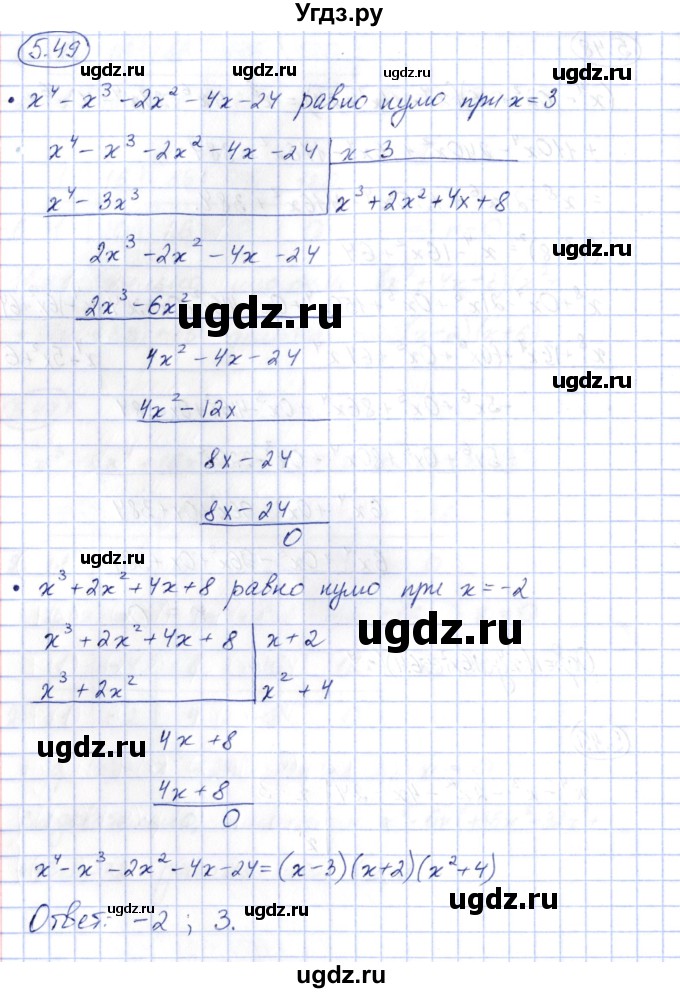 Угдз.ру
5.49
ugdz.ru ugdz.ru ugdz.ru
• x⁴ - x³ - 2x² - 4x - 24 равно нулю при x = 3
x⁴ - x³ - 2x² - 4x - 24 | x - 3
ugdz.ru ugdz.ru
x⁴ - 3x³ x³ + 2x² + 4x + 8
2x³ - 2x² - 4x - 24
ugdz.ru
2x³ - 6x²
ugdz.ru
4x² - 4x - 24
ugdz.ru
4x² - 12x
8x - 24
8x - 24
0
ugdz.ru
• x³ + 2x² + 4x + 8 равно нулю при x = -2
ugdz.ru
x³ + 2x² + 4x + 8 | x + 2
x³ + 2x² x² + 4
ugdz.ru
4x + 8
4x + 8
0
x⁴ - x³ - 2x² - 4x - 24 = (x - 3)(x + 2)(x² + 4)
ugdz.ru ugdz.ru ugdz.ru
Ответ: -2 ; 3.
ugdz.ru